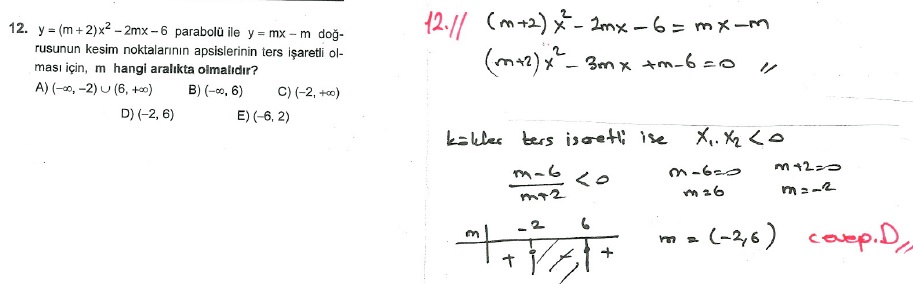 12. y = (m + 2)x² – 2mx – 6 parabolü ile y = mx – m doğ-
rusunun kesim noktalarının apsislerinin ters işaretli ol-
ması için, m hangi aralıkta olmalıdır?
A) (–∞, –2) ∪ (6, +∞) B) (–∞, 6) C) (–2, +∞)
D) (–2, 6) E) (–6, 2)
12.// (m+2)x² – 2mx – 6 = mx – m
(m+2)x² – 3mx + m – 6 = 0 //
kökler ters işaretli ise x₁.x₂ < 0
m–6/m+2 < 0 m–6=0 m+2=0
m=6 m=–2
m –2 6
+ – + m = (–2,6) cevap.D//